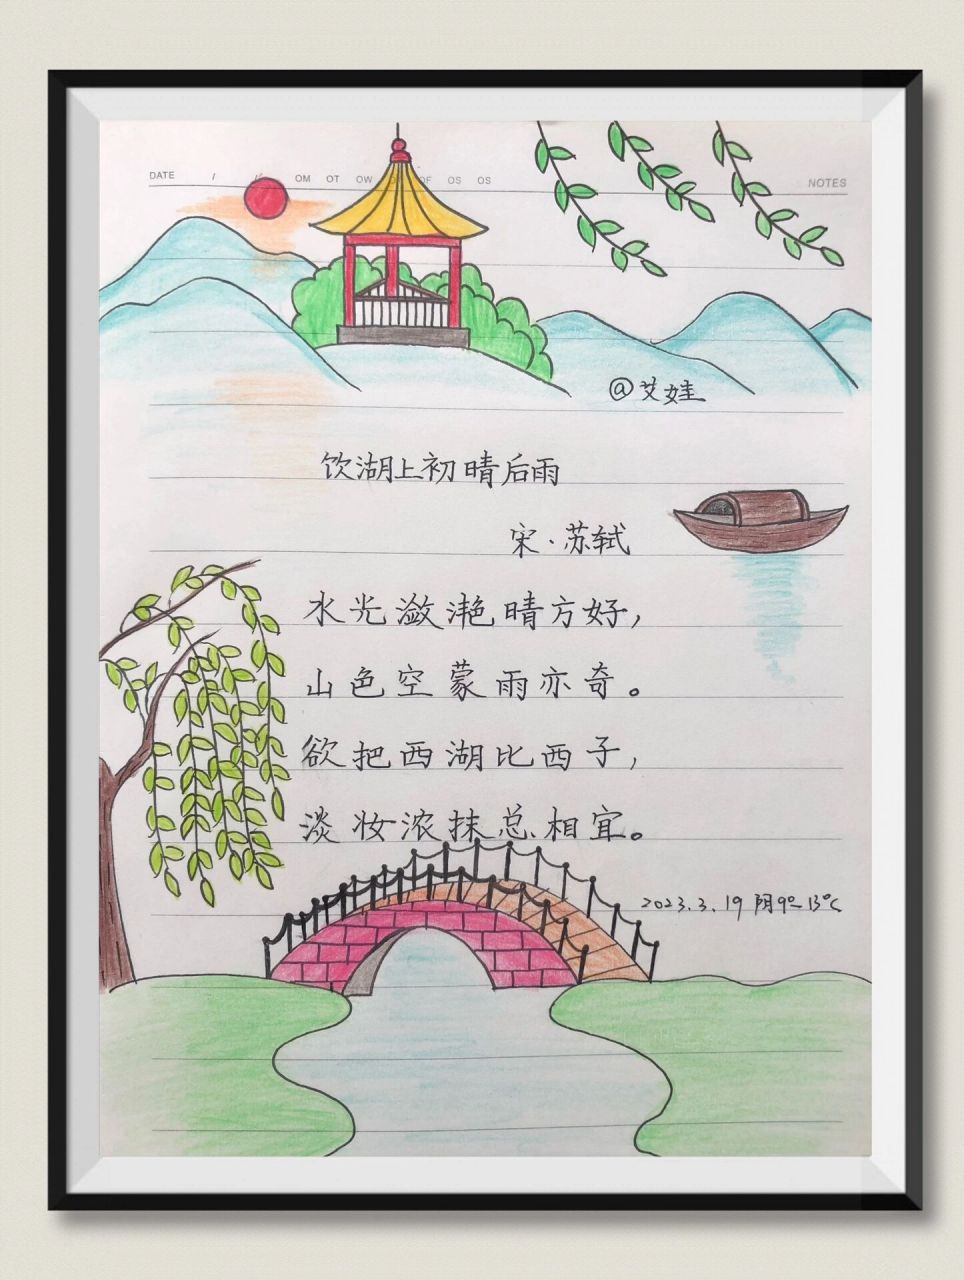 DATE / / OM OT OW OF OS OS NOTES
@艾娃
饮湖上初晴后雨
宋·苏轼
水光潋滟晴方好,
山色空蒙雨亦奇。
欲把西湖比西子,
淡妆浓抹总相宜。
2023.3.19 阴9°-13°C